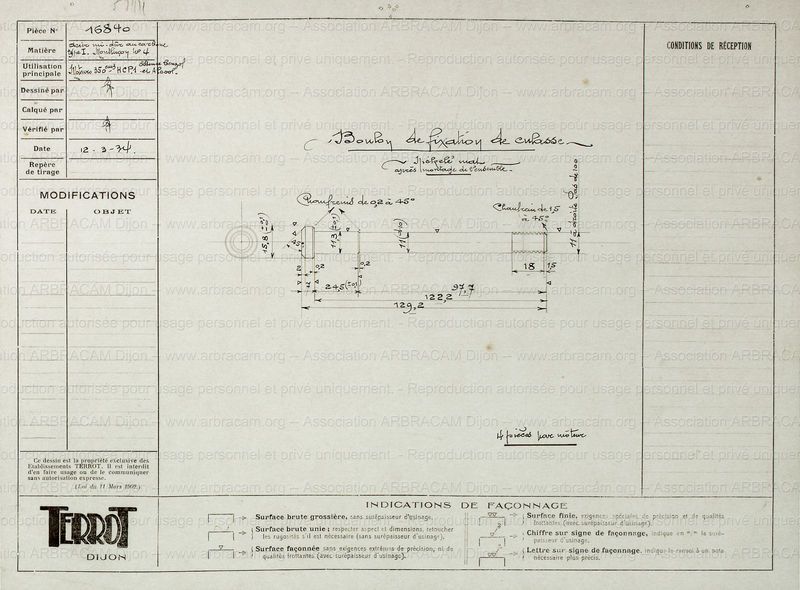 Pièce N° 16840
Matière
Type I. Montluçon N° 4
Utilisation principale
Moteurs 350 cmc HCP1
Dessiné par
Calqué par
Vérifié par
Date 12-3-34.
Repère de tirage
MODIFICATIONS
DATE OBJET
CONDITIONS DE RÉCEPTION
Boulon de fixation de culasse
après montage de l'ensemble
Chanfreins de 0,2 à 45°
Chanfrein de 1,5
à 45°
11 à droite Pas de 100
15,8 (±0,1)
11,3 (±0,1)
0,2
0,2
18
1,5
24,5 (±0,1)
97,7
122,2
129,2
4 pièces par moteur
Ce dessin est la propriété exclusive des
Etablissements TERROT. Il est interdit
d'en faire usage ou de le communiquer
sans autorisation expresse.
(Loi du 11 Mars 1902.)
TERROT
DIJON
INDICATIONS DE FAÇONNAGE
Surface brute grossière, sans surépaisseur d'usinage.
Surface brute unie; respecter aspect et dimensions, retoucher
les rugosités s'il est nécessaire (sans surépaisseur d'usinage).
Surface façonnée sans exigences extrêmes de précision, ni de
qualités frottantes (avec surépaisseur d'usinage).
Surface finie, exigences spéciales de précision et de qualités
frottantes (avec surépaisseur d'usinage).
Chiffre sur signe de façonnage, indique en m/m la surépaisseur d'usinage.
Lettre sur signe de façonnage, indique le renvoi à un note
nécessaire plus précis.
www.arbracam.org – Association ARBRACAM Dijon – www.arbracam.org – Association ARBRACAM Dijon
Reproduction autorisée pour usage personnel et privé uniquement. - Reproduction autorisée pour usage personnel et privé uniquement.